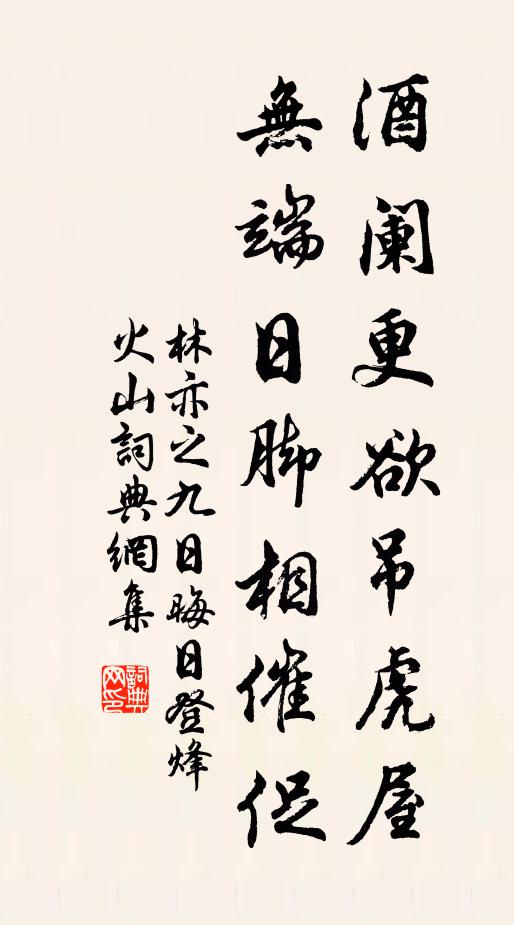 酒阑更欲吊虎屋
無端日脚相催促
林亦之九日晦日登烽
火山詞典網集
詞典
网印